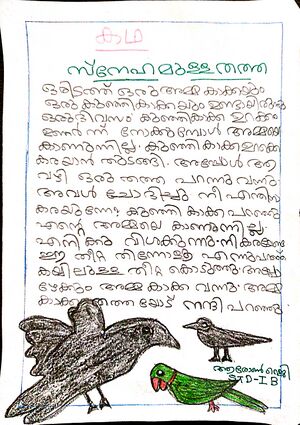 കഥ
സ്നേഹമുള്ള തത്ത
ഒരിടത്ത് ഒരു അമ്മ കാക്കയും
ഒരു കുഞ്ഞികാക്കയും ഉണ്ടായിരുന്നു
ഒരു ദിവസം കുഞ്ഞികാക്ക ഉറക്കം
ഉണർന്ന് നോക്കുമ്പോൾ അമ്മയെ
കാണുന്നില്ല കുഞ്ഞി കാക്ക ഉറക്കെ
കരയാൻ തുടങ്ങി. അപ്പോൾ ആ
വഴി ഒരു തത്ത പറന്നു വന്നു.
അവൾ ചോദിച്ചു നീ എന്തിനാ
കരയുന്നേ? കുഞ്ഞി കാക്ക പറഞ്ഞു
എന്റെ അമ്മയെ കാണുന്നില്ല.
എനിക്കു വിശക്കുന്നു. നീ കരയണ്ട
ഈ തീറ്റ തിന്നോളൂ എന്നു പറഞ്ഞു
കയ്യിലുള്ള തീറ്റ കൊടുത്തു. അപ്പോ
ഴേക്കും അമ്മ കാക്ക വന്നു. അമ്മ
കാക്ക തത്ത യോട് നന്ദി പറഞ്ഞു.
ആരോൺ
STD-I B